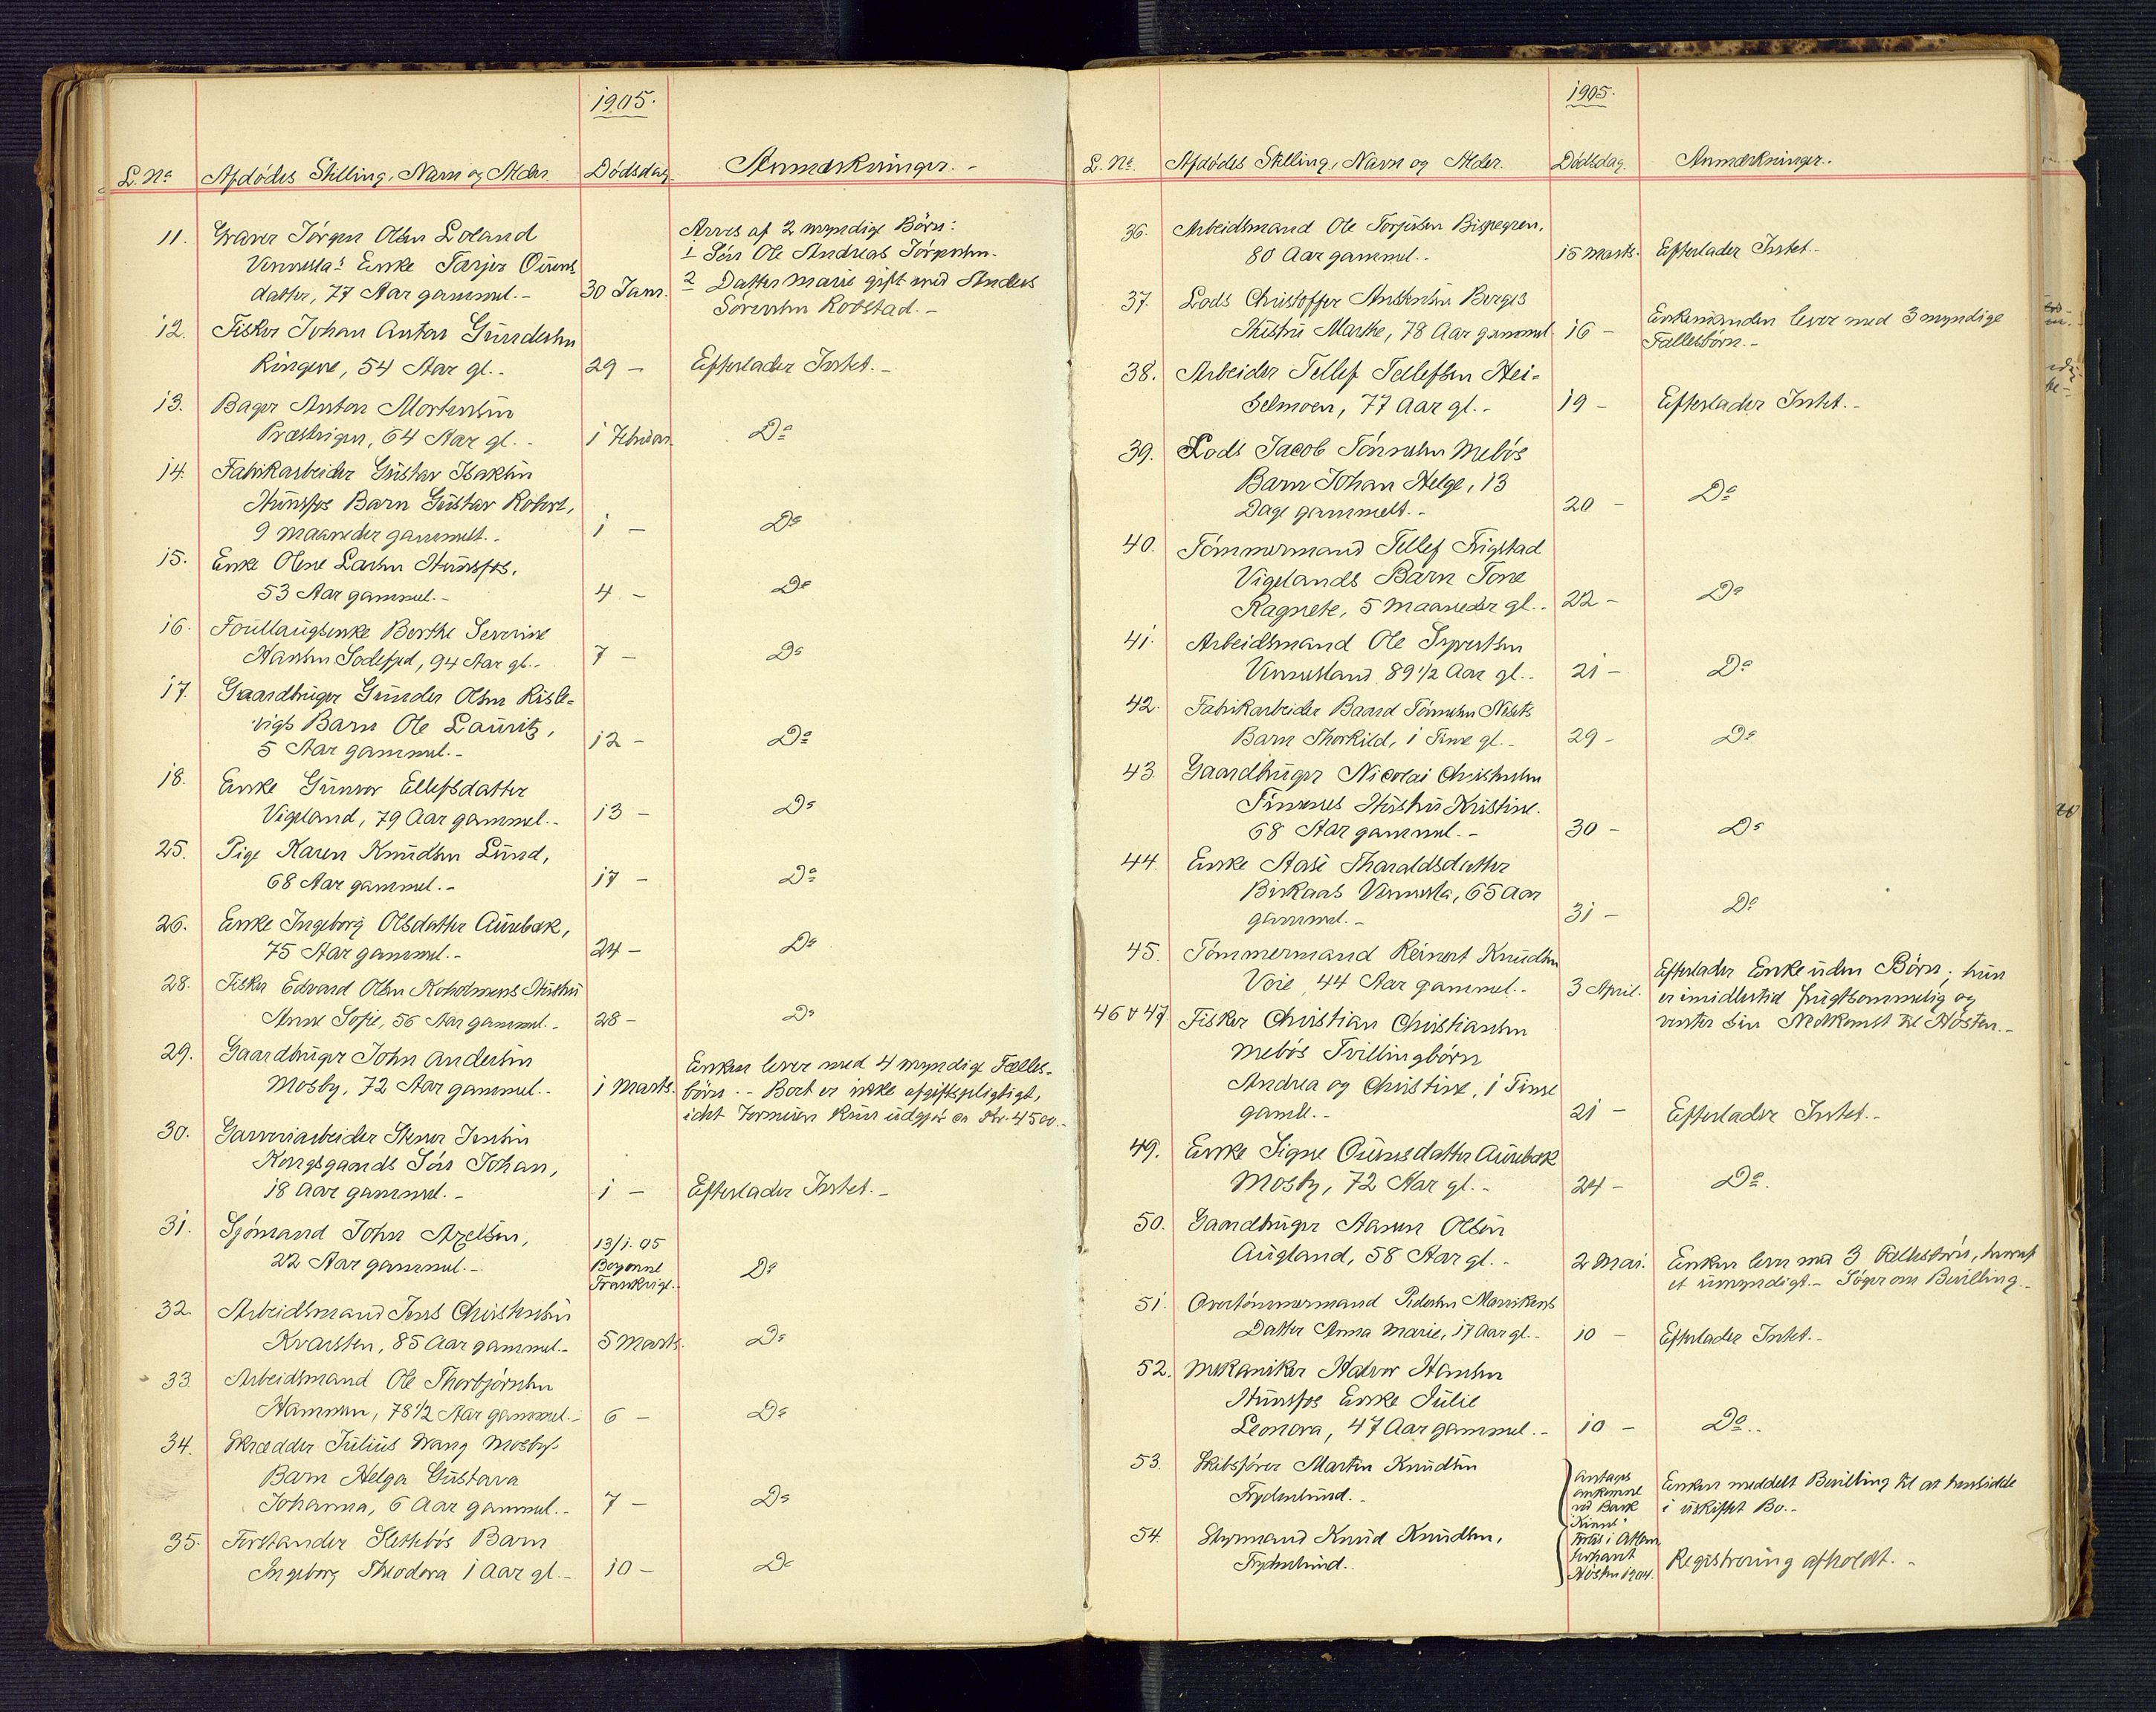 1905.
L. No Afdødes Stilling, Navn og Alder. Dødsdag. Anmærkninger. -
11. Graver Jørgen Olsen Loland
Vennesla's Enke Tarjer Ouvens
datter, 77 Aar gammel. - 30 Janr.
Arves af 2 myndige Børn:
1 Søn Ole Andreas Jørgensen.
2 Datter Marie gift med Anders
Sørensen Robstad. -
12. Fisker Johan Anton Gundersen
Ringøre, 54 Aar gl. - 29 - Efterlader Intet. -
13. Bager Anton Mortensen
Præstvigen, 64 Aar gl. - 1 Februar. Do
14. Fabrikarbeider Gustav Isaksen
Hunsfos Barn Gustav Robert,
9 Maaneder gammelt. - 1 - Do
15. Enke Olene Larsen Hunsfos,
53 Aar gammel. - 4 - Do
16. Foullaugsenke Berthe Severine
Hansen Sodefjed, 94 Aar gl. - 7 - Do
17. Gaardbruger Gunder Olsen Risle-
vigs Barn Ole Lauritz,
5 Aar gammel. - 12 - Do
18. Enke Gunvor Ellefsdatter
Vigeland, 79 Aar gammel. - 13 - Do
25. Pige Karen Knudsen Lund,
68 Aar gammel. - 17 - Do
26. Enke Ingeborg Olsdatter Aurebæk,
75 Aar gammel. - 24 - Do
28. Fisker Edvard Olsen Koholmens Hustru
Anne Sofie, 56 Aar gammel. - 28 - Do
29. Gaardbruger John Andersen
Mosby, 72 Aar gammel. - 1 Marts.
Enken lever med 4 myndige Fælles-
børn. - Boet er ikke afgiftspligtigt,
idet Formuen kun udgjør ca Kr. 4500. -
30. Garveriarbeider Steener Jensen
Kongsgaards Søn Johan,
18 Aar gammel. - 1 - Efterlader Intet. -
31. Sjømand John Axelsen,
22 Aar gammel. -
13/1. 05
Bayonne
Frankrige. Do
32. Arbeidsmand Jens Christensen
Kvarsten, 85 Aar gammel. - 5 Marts. Do
33. Arbeidsmand Ole Thorbjørnsen
Hammen, 78 1/2 Aar gammel. - 6 - Do
34. Skrædder Julius Wang Mosbys
Barn Helga Gustava
Johanna, 6 Aar gammel. - 7 - Do
35. Forstander Slettebøs Barn
Ingeborg Theodora 1 Aar gl. - 10 - Do
1905.
L. No. Afdødes Stilling, Navn og Alder. Dødsdag. Anmærkninger.
36. Arbeidsmand Ole Torjusen Bispegren,
80 Aar gammel. - 15 Marts. Efterlader Intet. -
37. Lods Christoffer Anstensen Berges
Hustru Marthe, 78 Aar gammel. 16 -
Enkemanden lever med 3 myndige
Fællesbørn. -
38. Arbeider Tellef Tellefsen Hei-
selmoen, 77 Aar gl. - 19 - Efterlader Intet. -
39. Lods Jacob Tønnesen Mebøs
Barn Johan Helge, 13
Dage gammelt. - 20 - Do
40. Tømmermand Tellef Frigstad
Vigelands Barn Tone
Ragnete, 5 Maaneder gl. - 22 - Do
41. Arbeidsmand Ole Syvertsen
Vennesland 89 1/2 Aar gl. - 21 - Do
42. Fabrikarbeider Baard Tønnesen Nesets
Barn Thorkild, 1 Time gl. - 29 - Do
43. Gaardbruger Nicolai Christensen
Timenes Hustru Kristine.
68 Aar gammel. - 30 - Do
44. Enke Aase Tharaldsdatter
Birkaas Vennesla, 65 Aar
gammel. - 31 - Do
45. Tømmermand Reinert Knudsen
Voie, 44 Aar gammel. - 3 April.
Efterlader Enke uden Børn; hun
er imidlertid frugtsommelig og
venter sin Nedkomst til Høsten. -
46 & 47 Fisker Christian Christiansen
Mebøs Tvillingbørn
Andrea og Christine, 1 Time
gamle. - 21 - Efterlader Intet. -
49. Enke Signe Ounesdatter Aurebæk
Mosby, 72 Aar gl. - 24 - Do.
50. Gaardbruger Aanen Olsen
Augland, 58 Aar gl. - 2 Mai.
Enken lever med 3 Fællesbørn, hvoraf
et umyndigt. - Søger om Bevilling. -
51. Overtømmermand Pedersen Marvikens
Datter Anna Marie, 17 Aar gl. - 10 - Efterlader Intet. -
52. Mekaniker Halvor Hansen
Hunsfos Enke Julie
Leonora, 47 Aar gammel. - 10 - Do. -
53. Skibsfører Martin Knudsen
Frydenlund. -
54. Styrmand Knud Knudsen,
Frydenlund. -
Antages
omkomne
ved Bark
Forlis i Atlan
terhavet
Høsten 1904.
Enken meddelt Bevilling til at hensidde
i uskiftet Bo. -
Registrering afholdt. -